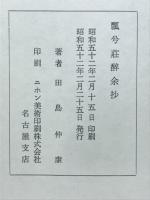 瓢号莊酔余抄
昭和五十二年二月十五日 印刷
昭和五十二年二月二十五日 発行
著者 田島仲康
印刷 ニホン美術印刷株式会社
名古屋支店